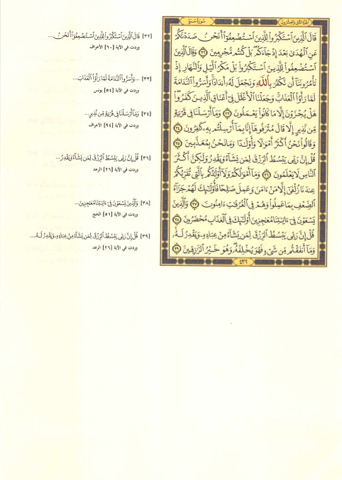 قَالَ ٱلَّذِينَ ٱسْتَكْبَرُوا۟ لِلَّذِينَ ٱسْتُضْعِفُوٓا۟ أَنَحْنُ صَدَدْنَٰكُمْ
عَنِ ٱلْهُدَىٰ بَعْدَ إِذْ جَآءَكُم بَلْ كُنتُم مُّجْرِمِينَ ٣٢ وَقَالَ ٱلَّذِينَ
ٱسْتُضْعِفُوا۟ لِلَّذِينَ ٱسْتَكْبَرُوا۟ بَلْ مَكْرُ ٱلَّيْلِ وَٱلنَّهَارِ إِذْ
تَأْمُرُونَنَآ أَن نَّكْفُرَ بِٱللَّهِ وَنَجْعَلَ لَهُۥٓ أَندَادًا وَأَسَرُّوا۟ ٱلنَّدَامَةَ
لَمَّا رَأَوُا۟ ٱلْعَذَابَ وَجَعَلْنَا ٱلْأَغْلَٰلَ فِىٓ أَعْنَاقِ ٱلَّذِينَ كَفَرُوا۟
هَلْ يُجْزَوْنَ إِلَّا مَا كَانُوا۟ يَعْمَلُونَ ٣٣ وَمَآ أَرْسَلْنَا فِى قَرْيَةٍ
مِّن نَّذِيرٍ إِلَّا قَالَ مُتْرَفُوهَآ إِنَّا بِمَآ أُرْسِلْتُم بِهِۦ كَٰفِرُونَ ٣٤
وَقَالُوا۟ نَحْنُ أَكْثَرُ أَمْوَٰلًا وَأَوْلَٰدًا وَمَا نَحْنُ بِمُعَذَّبِينَ ٣٥
قُلْ إِنَّ رَبِّى يَبْسُطُ ٱلرِّزْقَ لِمَن يَشَآءُ وَيَقْدِرُ وَلَٰكِنَّ أَكْثَرَ
ٱلنَّاسِ لَا يَعْلَمُونَ ٣٦ وَمَآ أَمْوَٰلُكُمْ وَلَآ أَوْلَٰدُكُم بِٱلَّتِى تُقَرِّبُكُمْ
عِندَنَا زُلْفَىٰٓ إِلَّا مَنْ ءَامَنَ وَعَمِلَ صَٰلِحًا فَأُو۟لَٰٓئِكَ لَهُمْ جَزَآءُ
ٱلضِّعْفِ بِمَا عَمِلُوا۟ وَهُمْ فِى ٱلْغُرُفَٰتِ ءَامِنُونَ ٣٧ وَٱلَّذِينَ
يَسْعَوْنَ فِىٓ ءَايَٰتِنَا مُعَٰجِزِينَ أُو۟لَٰٓئِكَ فِى ٱلْعَذَابِ مُحْضَرُونَ ٣٨
قُلْ إِنَّ رَبِّى يَبْسُطُ ٱلرِّزْقَ لِمَن يَشَآءُ مِنْ عِبَادِهِۦ وَيَقْدِرُ لَهُۥ
وَمَآ أَنفَقْتُم مِّن شَىْءٍ فَهُوَ يُخْلِفُهُۥ وَهُوَ خَيْرُ ٱلرَّٰزِقِينَ ٣٩
[٣٢] قَالَ ٱلَّذِينَ ٱسْتَكْبَرُوا۟ لِلَّذِينَ ٱسْتُضْعِفُوٓا۟ أَنَحْنُ...
[٣٣] ...وَأَسَرُّوا۟ ٱلنَّدَامَةَ لَمَّا رَأَوُا۟ ٱلْعَذَابَ...
[٣٤] وَمَآ أَرْسَلْنَا فِى قَرْيَةٍ مِّن نَّذِيرٍ...
وردت في الآية [٩٤] الأعراف
[٣٦] قُلْ إِنَّ رَبِّى يَبْسُطُ ٱلرِّزْقَ لِمَن يَشَآءُ وَيَقْدِرُ...
وردت في الآية [٢٦] الرعد
[٣٨] وَٱلَّذِينَ يَسْعَوْنَ فِىٓ ءَايَٰتِنَا مُعَٰجِزِينَ...
[٣٩] قُلْ إِنَّ رَبِّى يَبْسُطُ ٱلرِّزْقَ لِمَن يَشَآءُ مِنْ عِبَادِهِۦ وَيَقْدِرُ لَهُۥ...
وردت في الآية [٢٦] الرعد